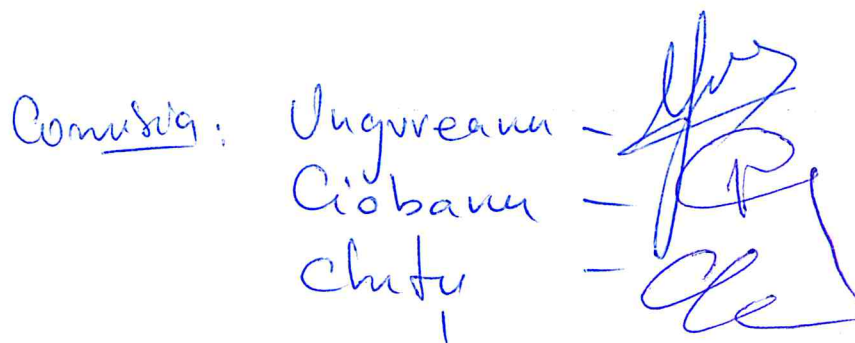 Comisia: Ungureanu -
Ciobanu -
Chifu -